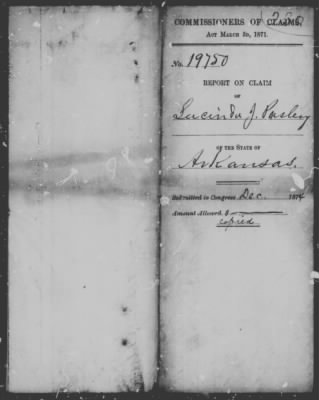 COMMISSIONERS OF CLAIMS,
ACT MARCH 3D, 1871.
No. 19750
REPORT ON CLAIM
OF
Lucinda J. Pasley
OF THE STATE OF
Arkansas.
Submitted to Congress Dec. 1874
Amount Allowed, $
copied